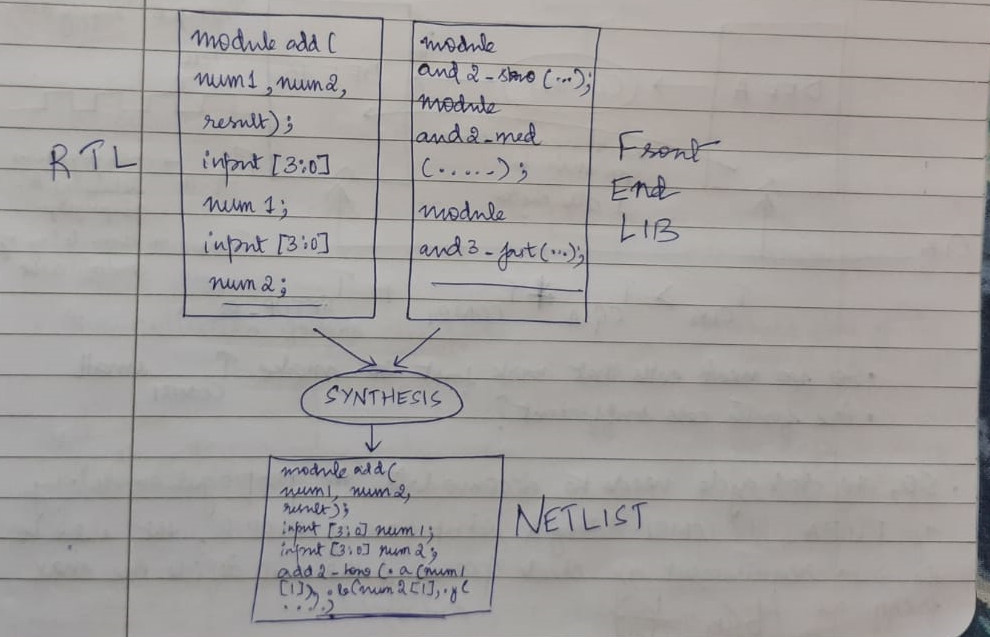 module add (
num1, num2,
result);
input [3:0]
num 1;
input [3:0]
num 2;
RTL
module
and 2 - (...);
module
and 2 - med
(.....);
module
and 3 - fast (...);
Front
End
LIB
SYNTHESIS
module add (
num1, num2,
result);
input [3:0] num 1;
input [3:0] num 2;
add 2 - (.a (num1
[1]), .b(num2[1], .y(
....)
NETLIST